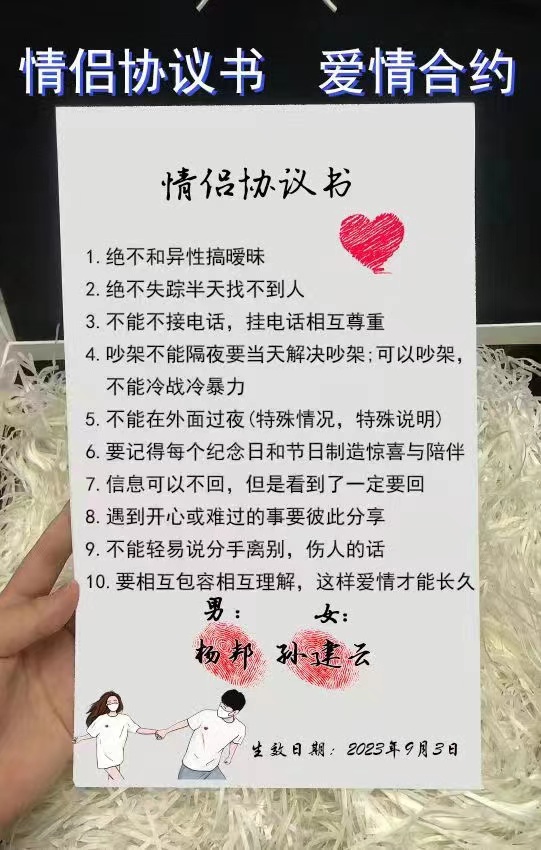 情侣协议书 爱情合约
情侣协议书
1.绝不和异性搞暧昧
2.绝不失踪半天找不到人
3.不能不接电话，挂电话相互尊重
4.吵架不能隔夜要当天解决吵架;可以吵架，
不能冷战冷暴力
5.不能在外面过夜(特殊情况，特殊说明)
6.要记得每个纪念日和节日制造惊喜与陪伴
7.信息可以不回，但是看到了一定要回
8.遇到开心或难过的事要彼此分享
9.不能轻易说分手离别，伤人的话
10.要相互包容相互理解，这样爱情才能长久
男： 女：
杨邦 孙建云
生效日期：2023年9月3日